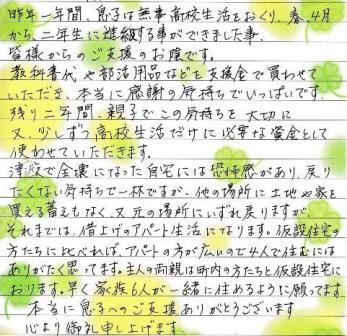 昨年一年間、息子は無事高校生活をおくり、春、4月
から、二年生に進級する事ができました事、
皆様からのご支援のお陰です。
教科書代や部活用品などを支援金で買わせて
いただき、本当に感謝の気持ちでいっぱいです。
残り二年間、親子でこの気持ちを大切に
又、少しずつ高校生活だけに必要な資金として
使わせていただきます。
津波で全壊になった自宅には恐怖感があり、戻り
たくない気持ちで一杯ですが、他の場所に土地や家を
買える蓄えもなく、又元の場所にいずれ戻りますが、
それまでは、借上げのアパート生活になります。仮設住宅の
方たちに比べれば、アパートの方が広いので4人で住むには
ありがたく思ってます。主人の両親は町内の方たちと仮設住宅に
おります。早く家族6人が一緒に住めるように願ってます。
本当に息子へのご支援ありがとうございます
心より御礼申し上げます。